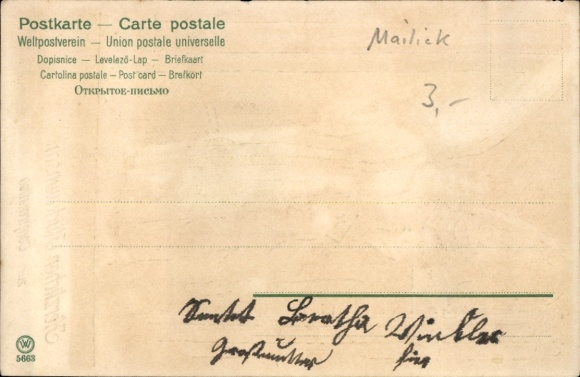 Postkarte — Carte postale
Weltpostverein — Union postale universelle
Dopisnice — Levelező-Lap — Briefkaart
Cartolina postale — Post card — Brefkort
Открытое-письмо
Mailick
3,-
Sendet Winkler
Großmutter hier
W
5663